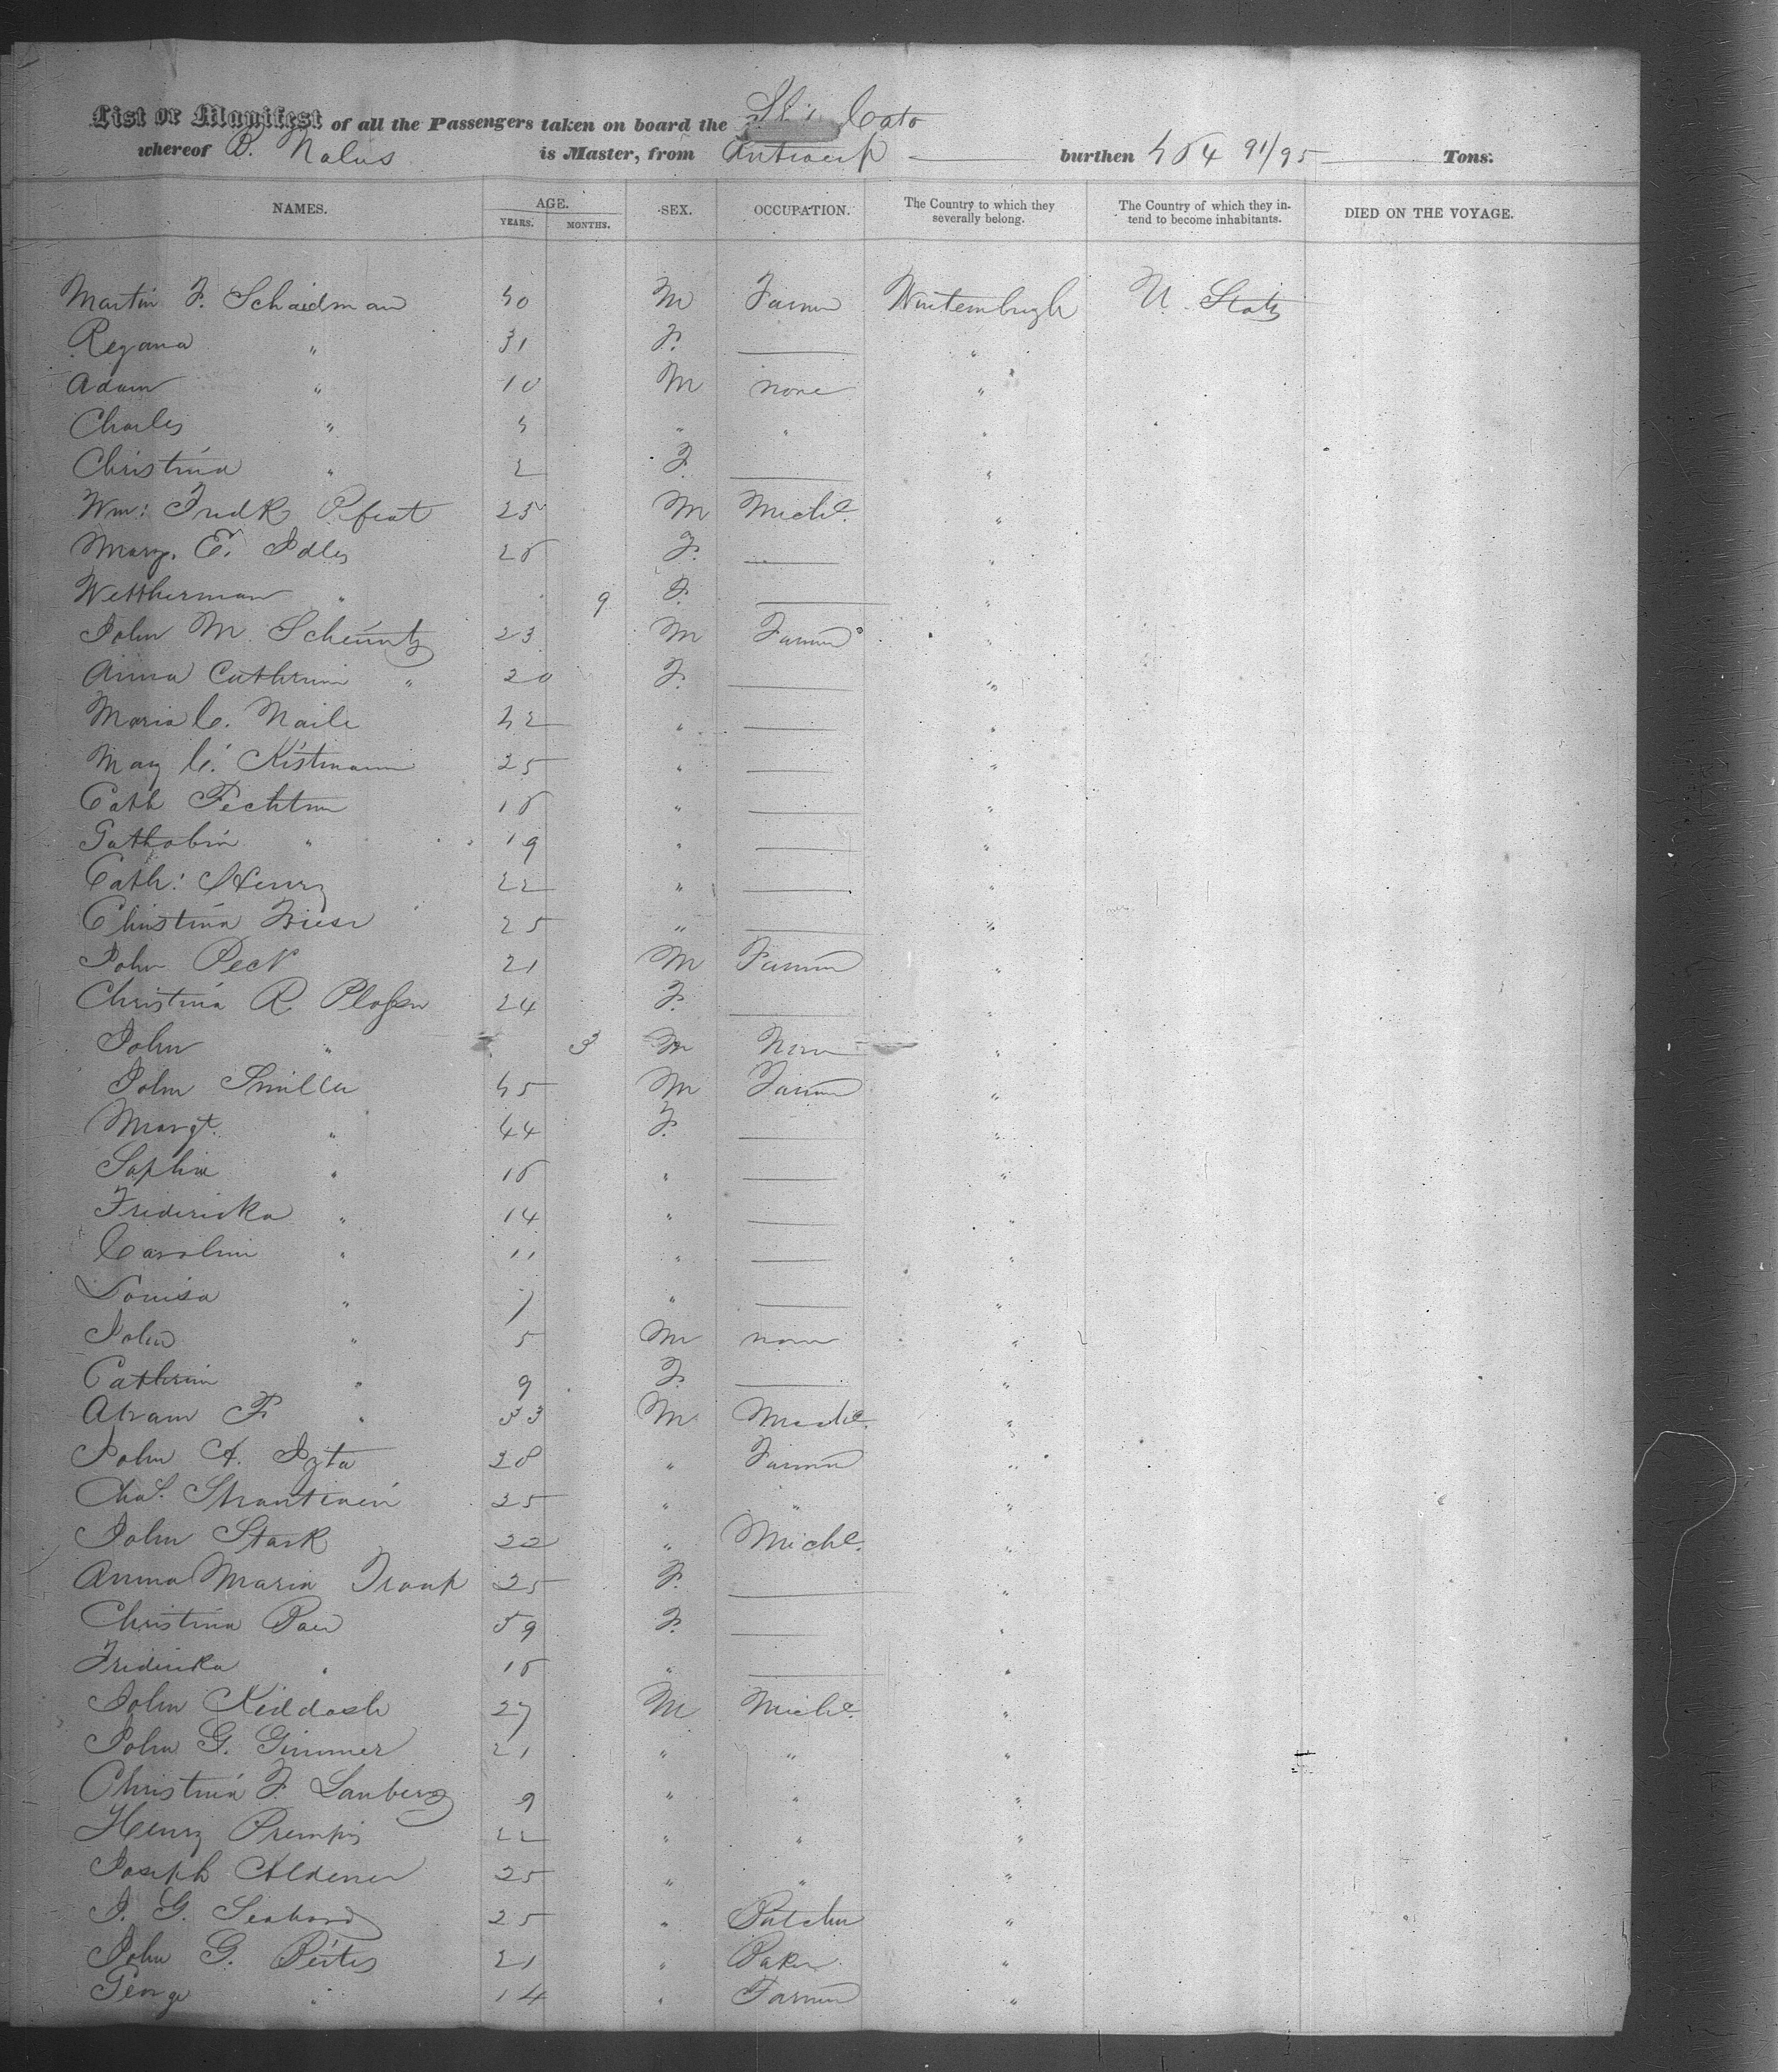 List or Manifest of all the Passengers taken on board the Shi Cato
whereof D. Nalus is Master, from Antwerp burthen 91/95 Tons.
NAMES. AGE. SEX. OCCUPATION. The Country to which they severally belong. The Country of which they in-tend to become inhabitants. DIED ON THE VOYAGE.
YEARS. MONTHS.
Martin F. Schaidman 30 M Farmer Wurtemburgh U. States
Regana " 31 F. "
Adam " 10 M none "
Charles " " " "
Christina " 2 F. "
Wm: Fredk Pifeat 25 M Mech. "
Mary. E. Idles F. "
Wettherman " 9 F. "
John M. Scheuntz 23 M Farmer "
Anna Cathrine " 20 F. "
Maria C. Naile " "
Mary C. Kistmann 25 " "
Cath Fechtmr " "
Gathobin " 19 " "
Cath: Henry 22 " "
Christina 25 " "
John Peck 21 M Farmer "
Christina R. Plossen 24 F. "
John " 3 M None "
John Smilla 45 M Farmer "
Margt. " 44 F. "
Sophia " " "
Fridericka " 14 " "
Caroline " 11 " "
Louisa " 7 " "
John " 5 M none "
Cathrin " 9 F. "
Abram F. " 33 M Mech. "
John A. 28 " Farmer "
Chas. 25 " " "
John Stark 22 " Mech. "
Anna Maria Traup 25 F. "
Christina Paur 59 F. "
Fridericka " " "
John Kiddash 27 M Mech. "
John G. Gimmer 21 " " "
Christina F. Lanberg 9 " " "
Henry Prempis 22 " " "
Joseph Aldener 25 " " "
J. G. Seaband 25 " Butcher "
John G. Peites 21 " Baker "
George " 14 " Farmer "